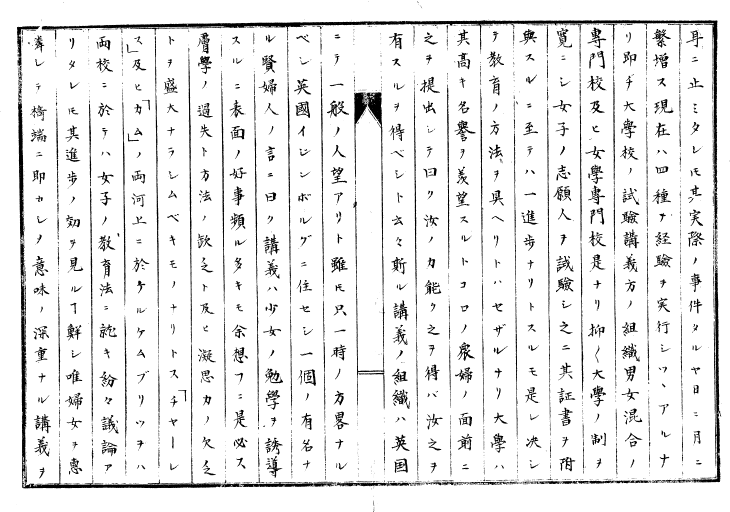 耳ニ止ミタレ𪜈其実際ノ事件タルヤ日ニ月ニ
繁増ス現在ハ四種ヲ経験ヲ実行シツヽアルナ
リ即チ大學校ノ試驗講義方ノ組織男女混合ノ
専門校及ヒ女學専門校是ナリ抑〱大學ノ制ヲ
寛ニシ女子ノ志願人ヲ試驗シ之ニ其証書ヲ附
與スルニ至テハ一進歩ナリトスルモ是レ决シ
テ教育ノ方法ヲ具ヘリトハセザルナリ大學ハ
其高キ名譽ヲ羨望スルトコロノ衆婦ノ面前ニ
之ヲ提出シテ曰ク汝ノカ能ク之ヲ得バ汝之ヲ
有スルヲ得ベシト云々斯ル講義ノ組織ハ英国
ニテ一般ノ人望アリト雖𪜈只一時ノ方畧ナル
ベシ英國イジンボルグニ住セシ一個ノ有名ナ
ル賢婦人ノ言ニ曰ク講義ハ少女ノ勉學ヲ誘導
スルニ表面ノ好事頗ル多キモ余想フニ是必ス
膚學ノ過失ト方法ノ欽乏ト及ヒ凝思力ノ欠乏
トヲ盛大ナラシムベキモノナリトス「チャーレ
ス」及ヒ「カム」ノ両河上ニ於ケルケムブリッヂハ
両校ニ於テハ女子ノ教育法ニ就キ紛々議論ア
リタレ𪜈其進歩ノ効ヲ見ルヿ鮮シ唯婦女ヲ惠
憐シテ椅端ニ即カシメ意味ノ深重ナル講義ヲ